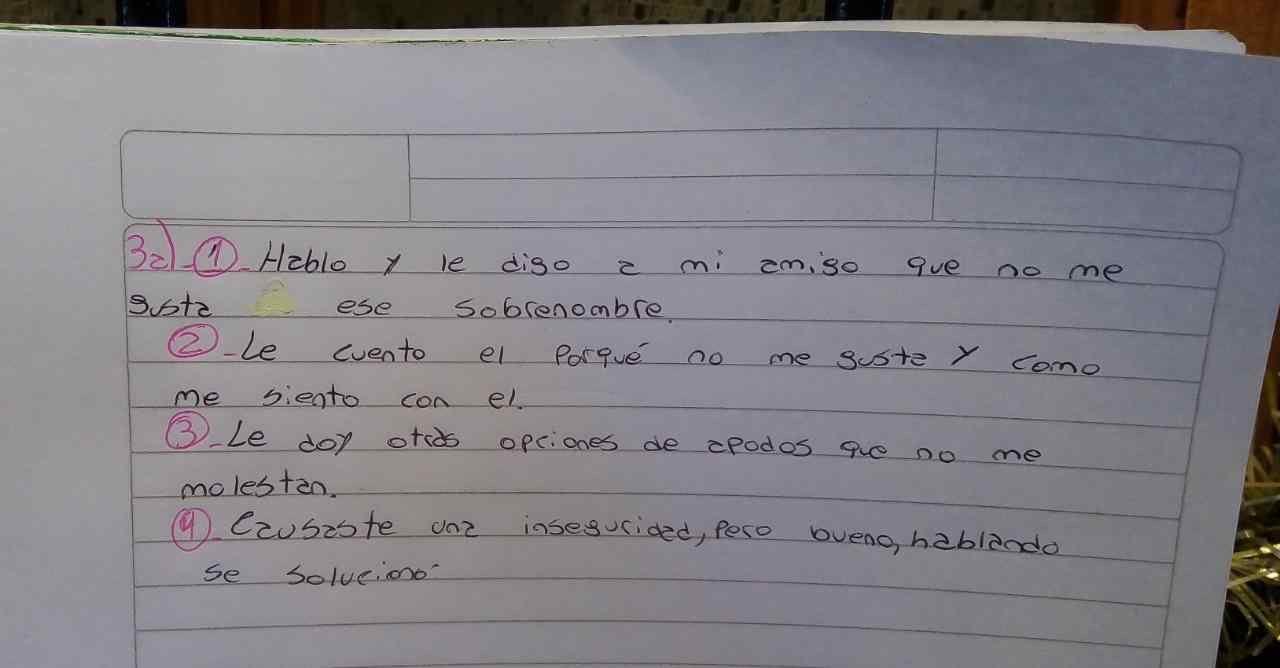 3a)-1-Hablo y le digo a mi amigo que no me
gusta ese sobrenombre.
2-Le cuento el porqué no me gusta y como
me siento con el.
3-Le doy otras opciones de apodos que no me
molestan.
4-Causaste una inseguridad, pero bueno, hablando
se soluciono.